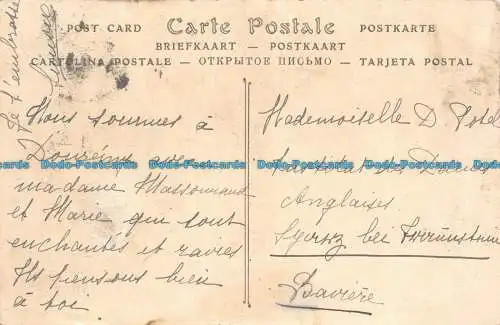 POST CARD Carte Postale POSTKARTE
BRIEFKAART — POSTKAART
CARTOLINA POSTALE — ОТКРЫТОЕ ПИСЬМО — TARJETA POSTAL
Je t'embrasse
Nous sommes à
Domrémy avec
madame
et Marie qui sont
enchantés et ravies
Ils pensons bien
à toi
Mademoiselle D.
Institut des Dames
Anglaises
bei Traunstein
Bavière
Dodo-Postcards Dodo-Postcards Dodo-Postcards Dodo-Postcards Dodo-Postcards